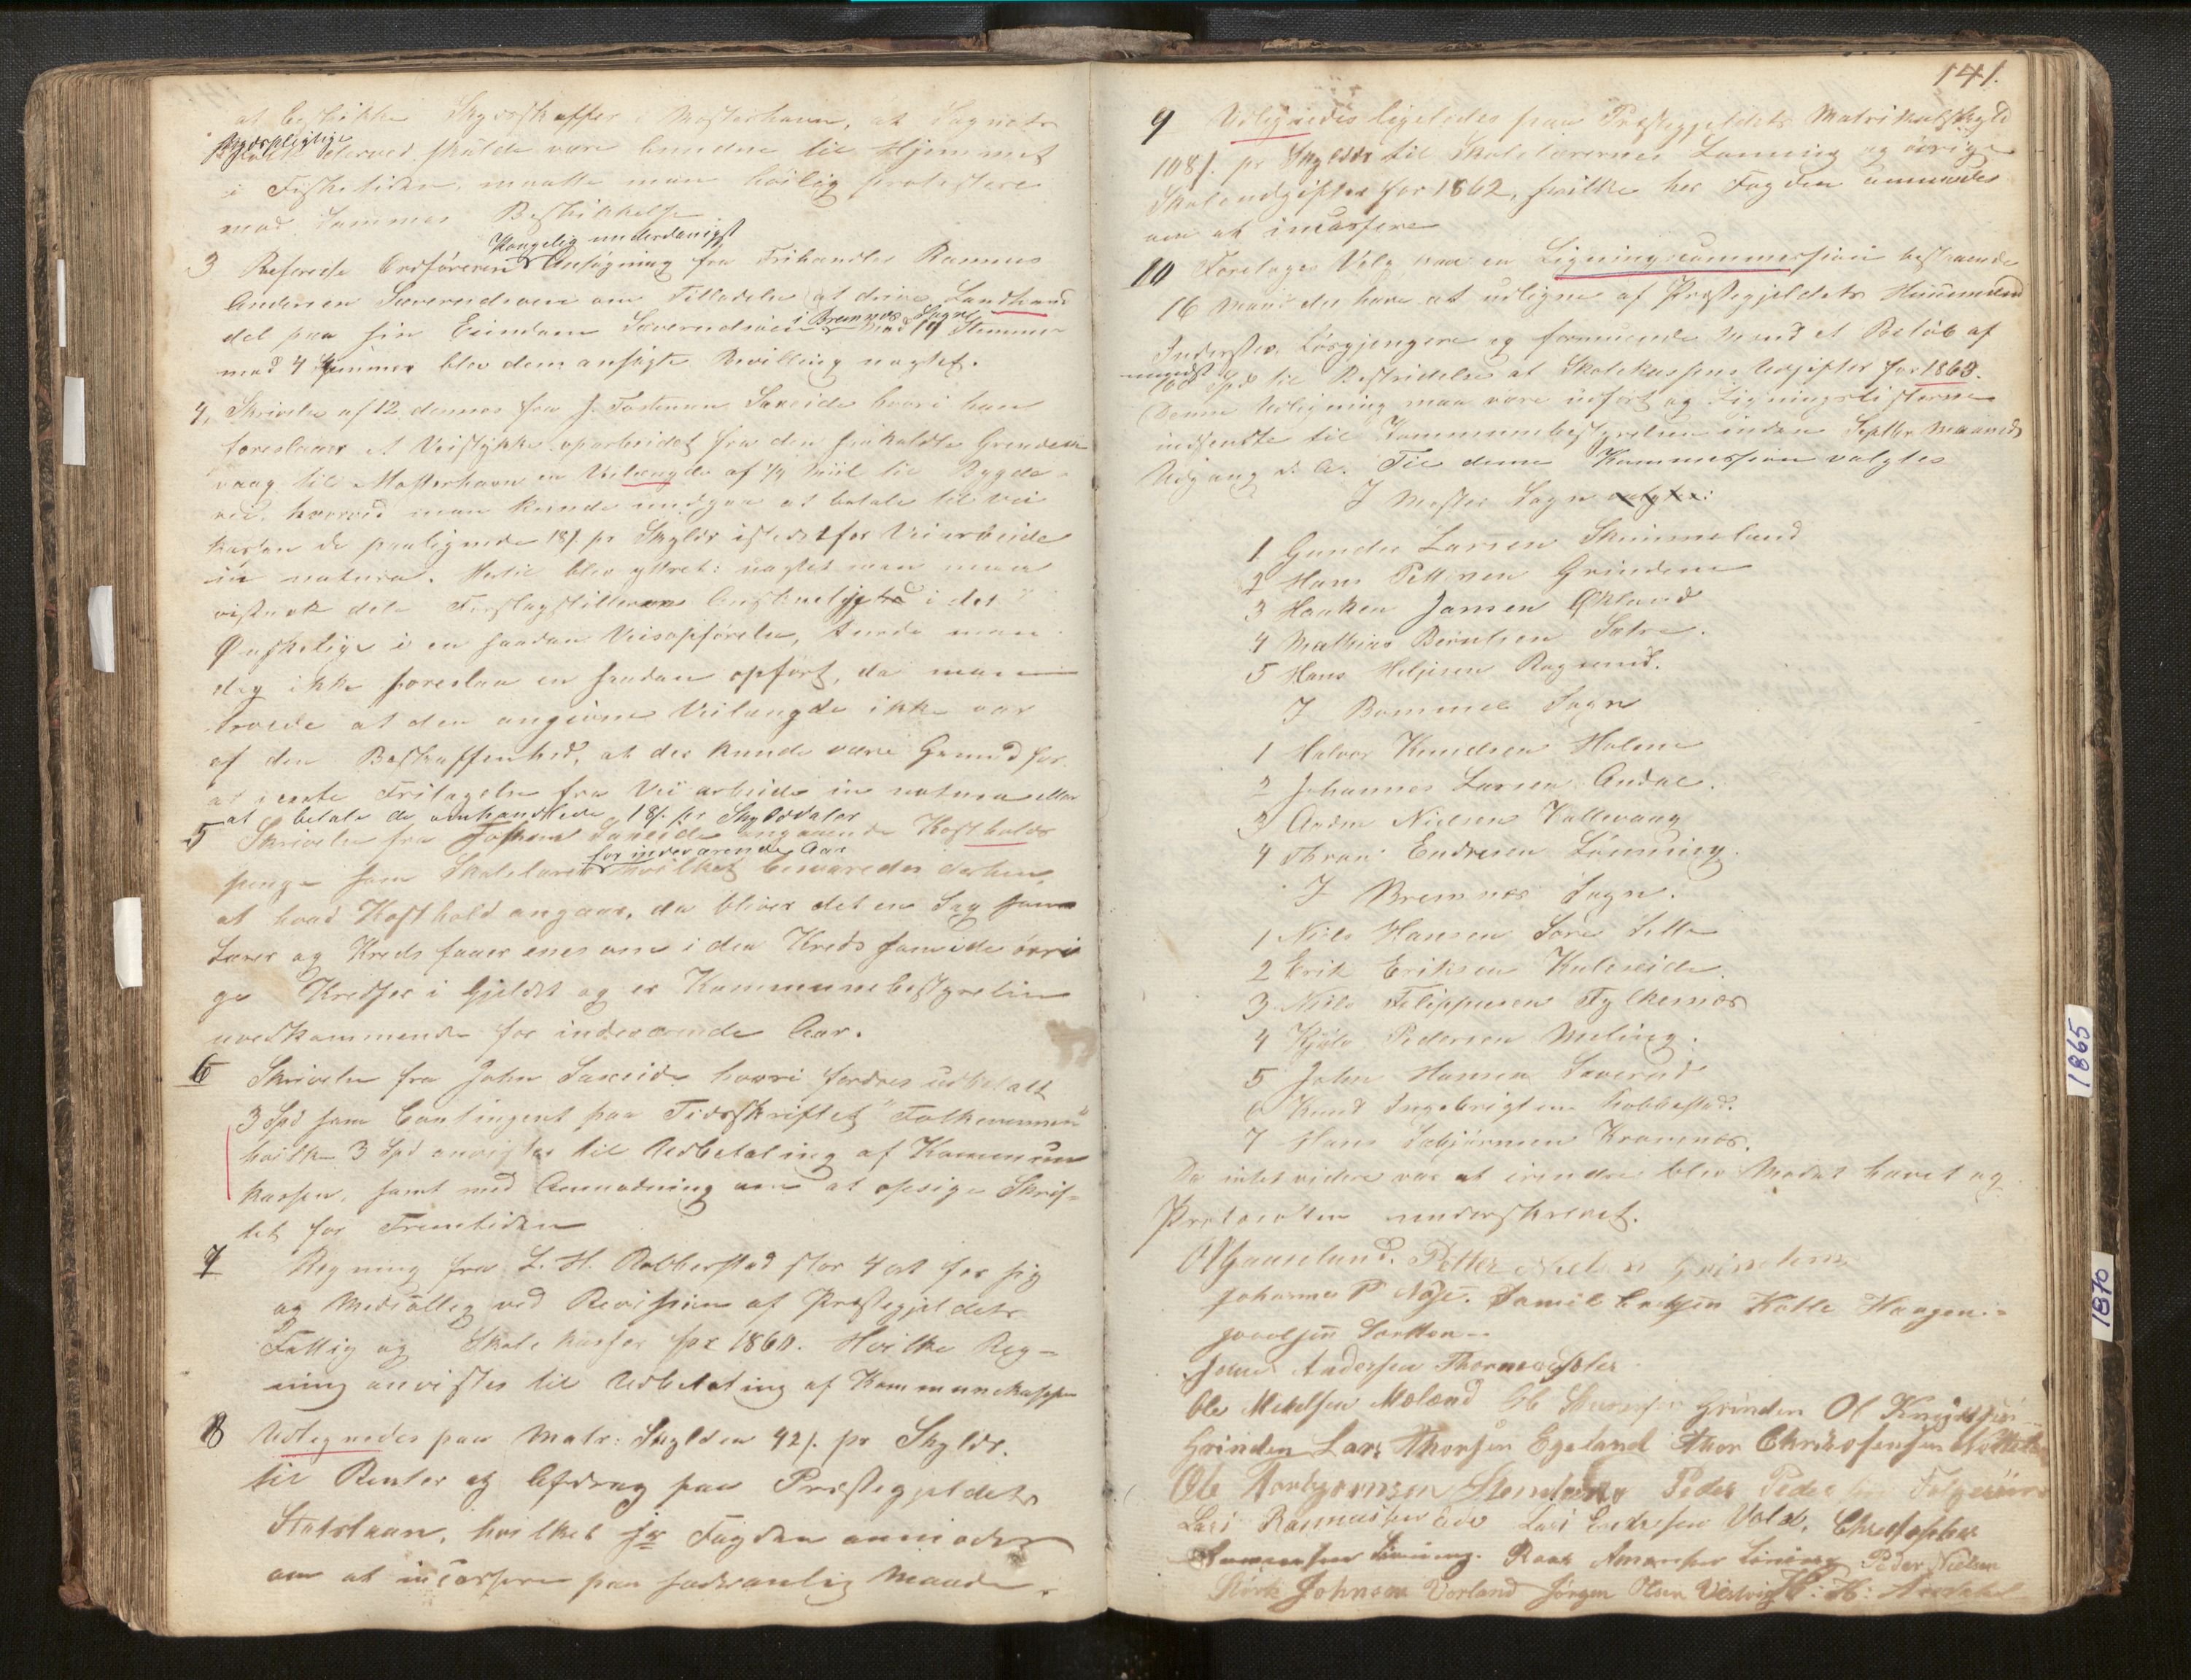 at beskikke Skydsskaffer i Mosterhavn, at Sognets
skydspligtige
derved skulde være bunden til Hjemmet
i Fisketiden, maatte man høilig protestere
mod Sammes Beskikkelse
Kongelig underdanigst
3 Refererede Ordføreren Ansøgning fra Frihandler Rasmus
Andersen Sæverudsøen om Tilladelse at drive Landhan
del paa sin Eiendom Sæverudsøen i Bremnes Sogn. Med 14 Stemmer
mod 4 Stemmer blev dem ansøgte Bevilling nægtet.
4, Skrivelse af 12 dennes fra J. Tostensen Saxeide hvori han
foreslaaer et Veistykke oparbeidet fra den saakaldte Grindem
vaag til Mosterhavn en Veilængde af 1/4 Miil til Bygde
vei, hvorved man kunde undgaa at betale til Vei
kassen de paalignede 18/. pr Skyldr istedetfor Veiarbeide
in natura. Hertil blev yttret: uagtet man maa
vistnok dele Forslagstilleren i det
Ønskelige i en saadan Veisopførelse, turde man
dog ikke foreslaa en saadan opført, da man
troede at den angivne Veilængde ikke var
af den Beskaffenhed, at der kunde være Grund for
at vente Fritagelse fra Vei arbeide in natura eller
at betale de omhandlede 18/. pr Skylddaler
5 Skrivelse fra Johan Saxeide angaaende Kostholds
for indeværende Aar
penge som Skolelærer hvilket besvaredes derhen,
at hvad Kosthold angaar, da bliver det en Sag som
Lærer og Kreds faaer enes om i den Kreds som i de øvri
ge Kredser i Gjeldet og er Kommunebestyrelsen
uvedkommende for indeværende Aar.
6 Skrivelse fra John Saxeide hvori fordres udbetalt
3 Spd som Contingent paa Tidsskriftet "Folkevennen"
hvilke 3 Spd anvistes til Udbetaling af Kommune
kassen, samt med Anmodning om at opsige Skrif-
tet for Fremtiden
7 Regning fra L. H. Robberstad stor 4 ort for sig
og Medsøtteg ved Revision af Præstegjeldets
Fattig og Skole kasser for 1860. Hvilke Reg-
ning anvistes til Udbetaling af Kommunekassen
8 Udlignedes paa Matr: Skylden 42/. pr Skyldr.
til Renter og Afdrag paa Præstegjeldets
Statslaan, hvilket hr Fogden anmodes
om at incassere paa sædvanlig Maade.
141.
9 Udlignedes ligeledes paa Præstegjeldets Matrikulskyld
108/. pr Skyldr til Skolelærernes Lønning og øvrige
Skoleudgifter for 1862, hvilke hr Fogden anmodes
om at incassere
10 Foretoges Valg paa en Ligningscommission bestaaende
16 Mand der have at udligne af Præstegjeldets Huusmænd
Inderster, Løsgjengere og formuende Mænd et Beløb af
mindst
100 Spd til Bestridelse af Skolekassens Udgifter for 1863.
Denne Udligning maa være udført og Ligningslisterne
indsendte til Kommunebestyrelsen inden Septbr Maaneds
Udgang d. A. Til denne Kommission valgtes
I Moster Sogn valgtes:
1 Gunder Larsen Skimmeland
2 Hans Pettersen Grindem
3 Haaken Jansen Økland
4 Mathias Berntsen Sætre.
5 Hans Helgesen Rogsund.
I Bømmel Sogn
1 Halvor Knudsen Holme
2 Johannes Larsen Andal.
3 Andr Nielsen Vallevaag
4 Thron Endresen Lønning.
I Bremnæs Sogn.
1 Niels Hansen Søre Lille
2 Erik Eriksen Kuleseide.
3 Niels Filippusen Fylkesnæs
4 Kjøln Pedersen Meling.
5 John Hansen Sæverud
6 Knud Ingebrigtsen Hobbestad.
7 Hans Asbjørnsen Kramnæs.
Da intet videre var at erindre blev Mødet hævet og
Protocollen underskrevet.
O Gaaseland. Petter Nielsen Grindem
Johannes P Nøse. Samil Endsen Katle Haagen
Joachsen Sortten
Jone Andersen Thormodsæter
Ole Mikelsen Mæland Ole Grinden Ol Knudssen
Grinden Lars Thorsen Egeland Thor Christofersen
Ole Torbjørnsen Stendere Peder Peder Folgerøen
Lars Rasmussen Eide Lars Endresen Vold. Christopher
Amundsen Lønning. Roar Amundsen Lønning Peder Nielsen
Størk Johnson Vorland Jørgen Olsen Vestvig H: H:
1865
1870